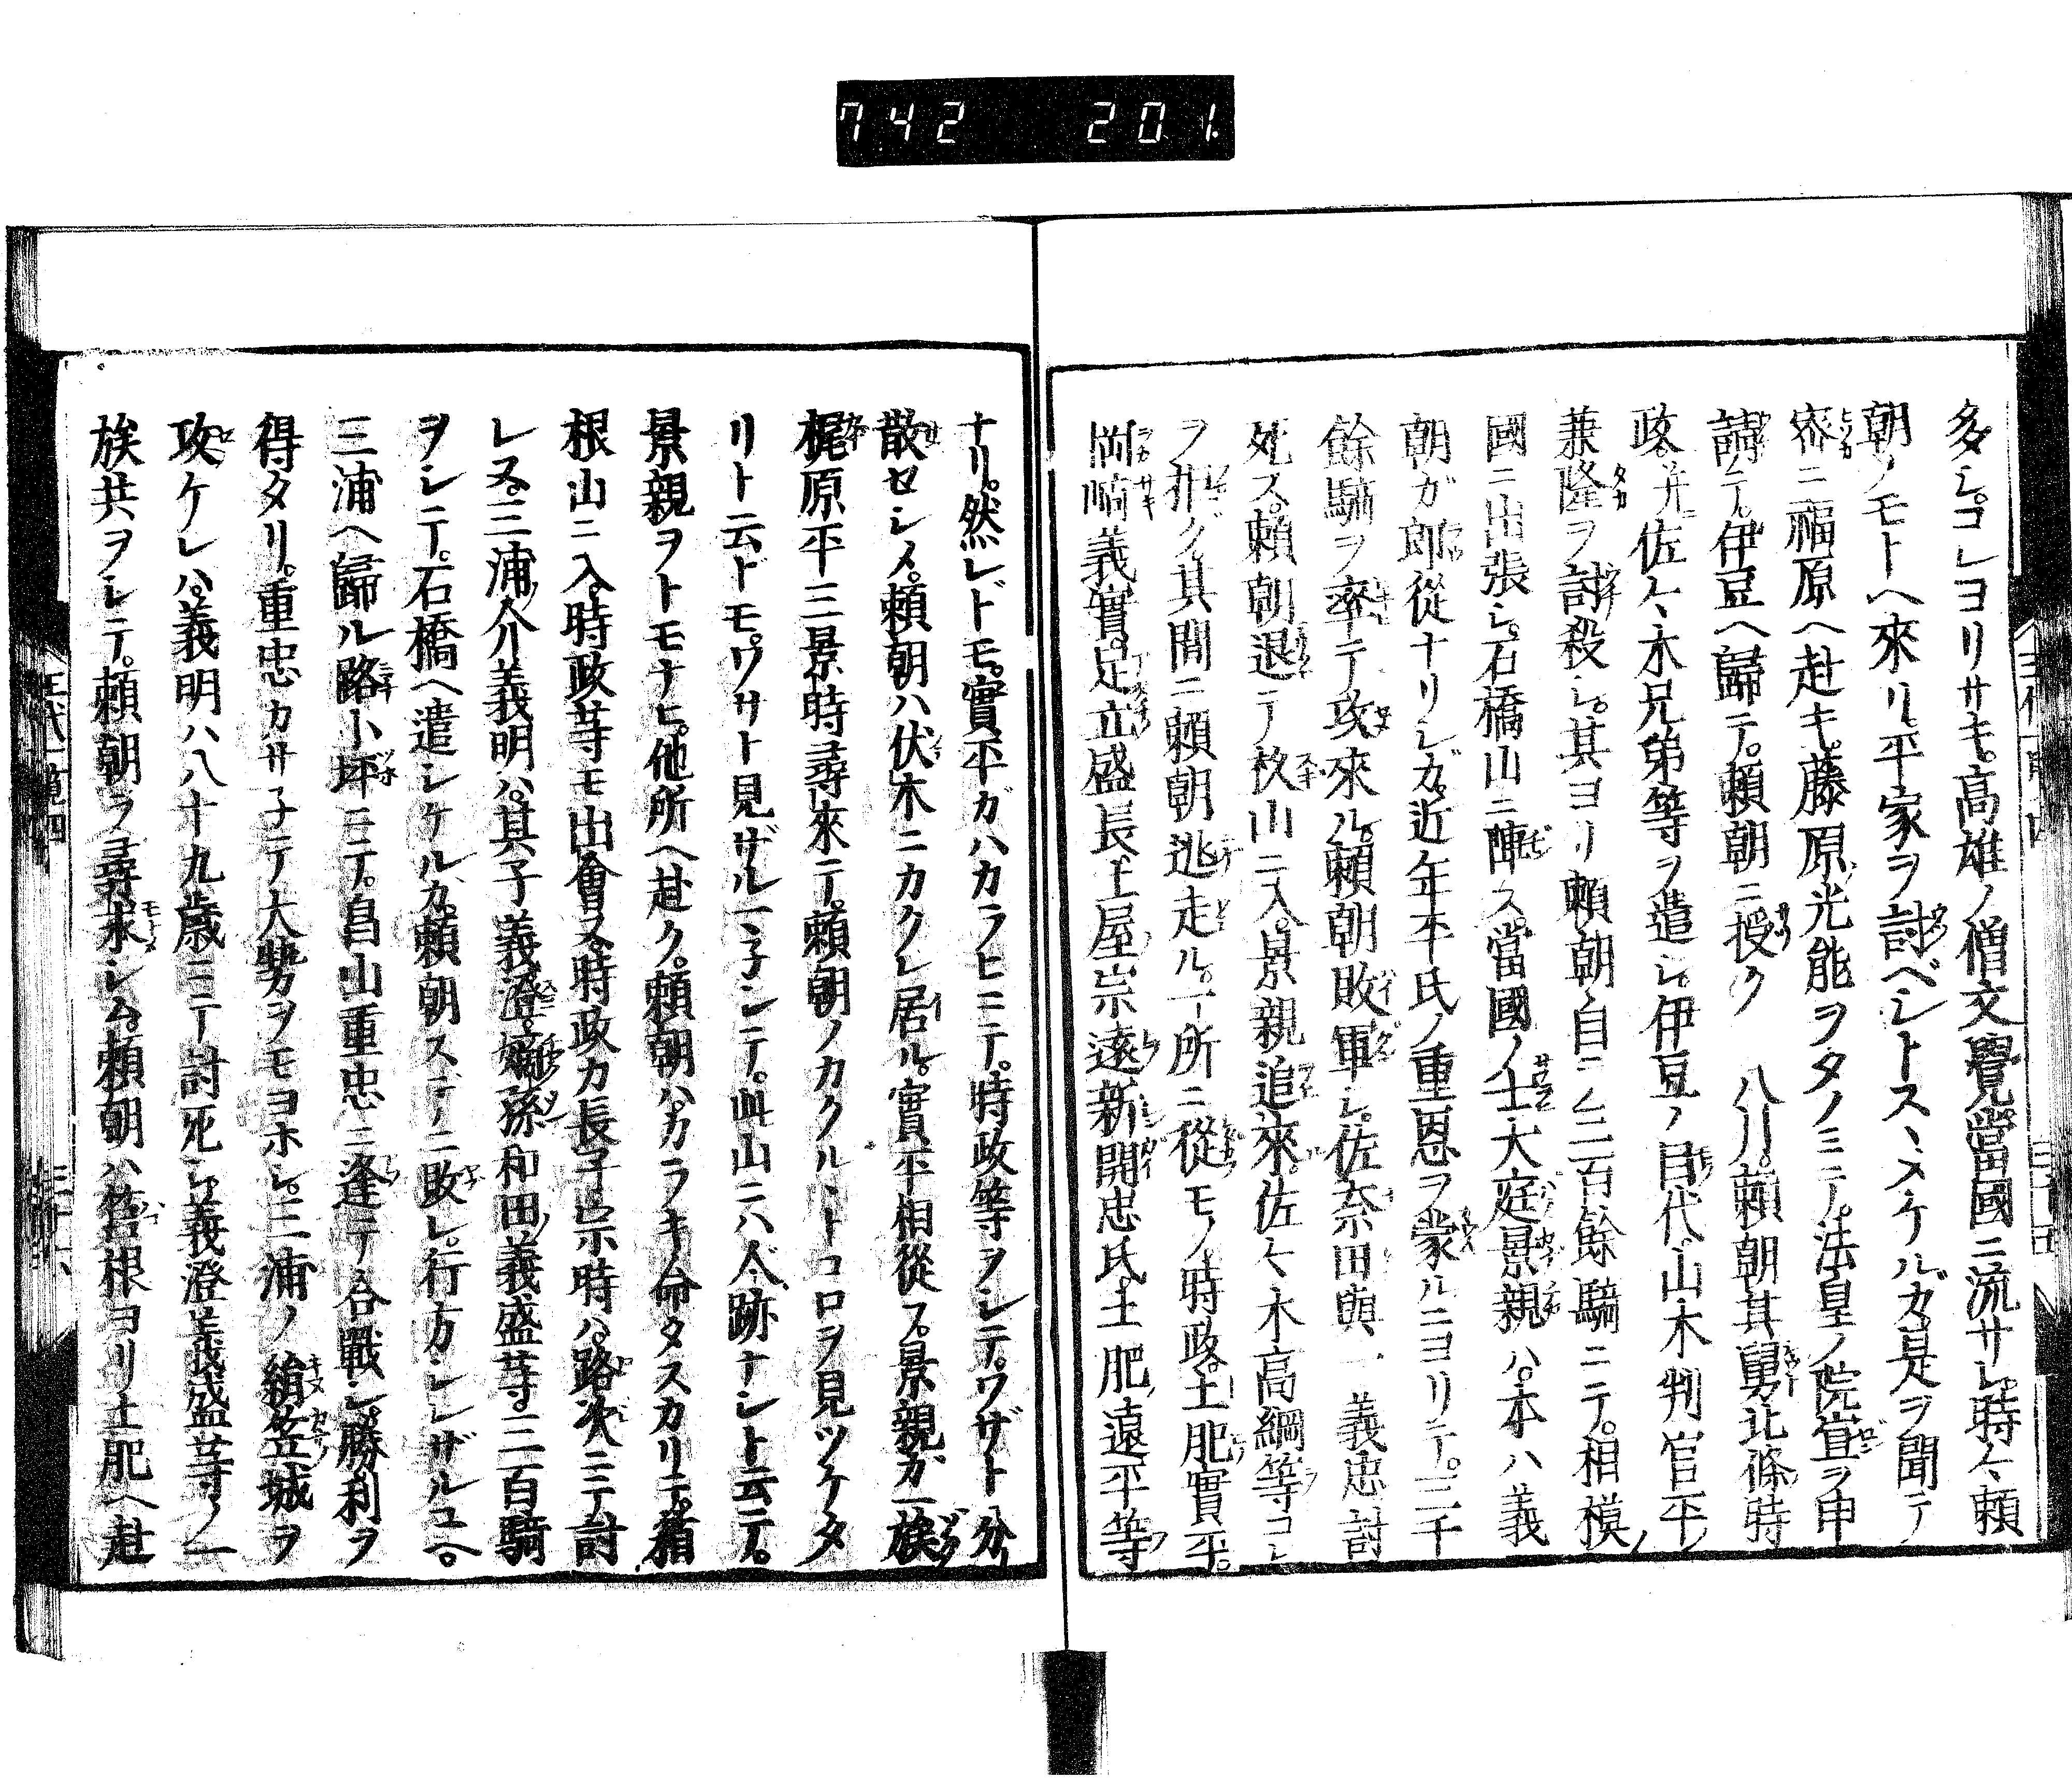 742 201
多シ。コレヨリサキ。高雄ノ僧文覺當國ニ流サレ。時々頼
朝ノモトヘ來リ。平家ヲ討ベシトスヽメケルガ。是ヲ聞テ
密ニ福原ヘ赴キ。藤原光能ヲタノミテ。法皇ノ院宣ヲ申
請テ。伊豆ヘ歸テ。頼朝ニ授ク 八月。頼朝其舅北條時
政。并佐々木兄弟等ヲ遣シ。伊豆ノ目代。山木判官平
兼隆ヲ討殺シ。其ヨリ頼朝自ラ三百餘騎ニテ。相模
國ニ出張シ。石橋山ニ陣ス。當國ノ士大庭景親ハ。本ハ義
朝ガ郎從ナリシガ。近年平氏ノ重恩ヲ蒙ルニヨリテ。三千
餘騎ヲ率テ攻來ル。頼朝敗軍シ。佐奈田與一義忠討
死ス。頼朝退テ杦山ニ入。景親追來。佐々木高綱等コレ
ヲ扞グ。其間ニ頼朝逃走ル。一所ニ從モノ時政。土肥實平。
岡崎義實。足立盛長土屋宗遠新開忠氏。土肥遠平等
ナリ。然レドモ。實平ガハカラヒニテ。時政等ヲシテ。ワザト分
散セシメ。頼朝ハ伏木ニカクレ居ル。實平相從フ。景親ガ一族
梶原平三景時尋來テ。頼朝ノカクルヽトコロヲ見ツケタ
リト云ドモ。ワサト見ザルマネシテ。此山ニハ人跡ナシト云テ。
景親ヲトモナヒ。他所ヘ赴ク。頼朝ハカラキ命タスカリテ。箱
根山ニ入。時政等モ出會ス。時政カ長子宗時ハ。路次ニテ討
レヌ。三浦介義明ハ。其子義澄。嫡孫和田義盛等。三百騎
ヲシテ。石橋ヘ遣シケルカ。頼朝ステニ敗レ。行方シレザルユヘ。
三浦ヘ歸ル路小坪ニテ。畠山重忠ニ逢テ合戰シ。勝利ヲ
得タリ。重忠カサネテ大勢ヲモヨホシ。三浦ノ絹笠城ヲ
攻ケレハ。義明ハ八十九歳ニテ討死シ。義澄義盛等ノ一
族共ヲシテ。頼朝ヲ尋求シム。頼朝ハ筥根ヨリ土肥ヘ赴
王代一覽四
三十六